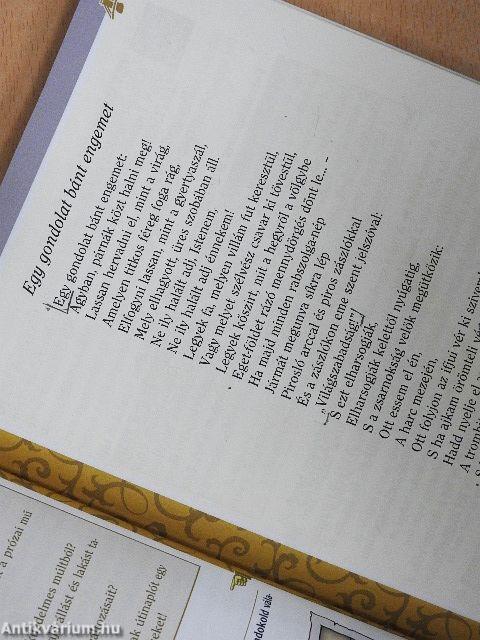 Egy gondolat bánt engemet
Egy gondolat bánt engemet:
Ágyban, párnák közt halni meg!
Lassan hervadni el, mint a virág,
Amelyen titkos féreg foga rág,
Elfogyni lassan, mint a gyertyaszál,
Mely elhagyott, üres szobában áll.
Ne ily halált adj, Istenem,
Ne ily halált adj énnekem!
Legyek fa, melyen villám fut keresztül,
Vagy melyet szélvész csavar ki tövestül,
Legyek kőszirt, mit a hegyről a völgybe
Eget-földet rázó mennydörgés dönt le... –
Ha majd minden rabszolga-nép
Jármát megunva síkra lép
Pirosló arccal és piros zászlókkal
És a zászlókon eme szent jelszóval:
„Világszabadság!”
S ezt elharsogják,
Elharsogják kelettől nyúgatig,
S a zsarnokság velök megütközik:
Ott essem el én,
A harc mezején,
Ott folyjon az ifjui vér ki szívem
S ha ajkam örömteli
Hadd nyelje el
A tromb
a prózai mű
delmes múltból?
állást és lakást ta-
zását?
ak útinaplót egy
eket!
ndokold vála-
Antikvárium.hu
Antikvárium.hu